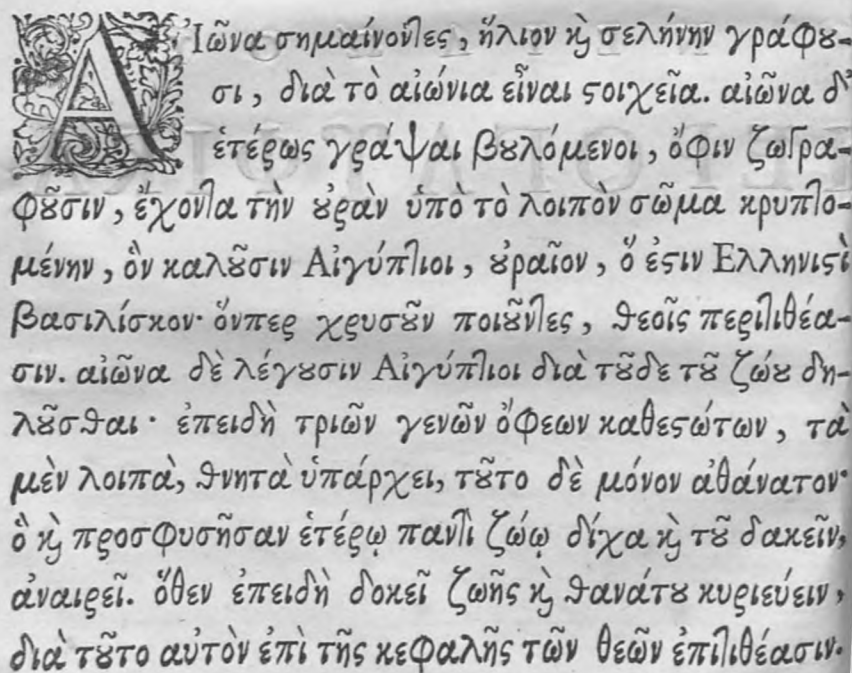 ΑἸῶνα σημαίνοντες, ἥλιον ϗ σελήνην γράφȣ-
σι, διὰ τὸ αἰώνια εἶναι ϛοιχεῖα. αἰῶνα δ᾽
ἑτέρως γράψαι βȣλόμενοι, ὄφιν ζωγρα-
φȣ͂σιν, ἔχοντα τὴν ȣ̓ρὰν ὑπὸ τὸ λοιπὸν σῶμα κρυπτο-
μένην, ὃν καλȣ͂σιν Αἰγύπτιοι, ȣ̓ραῖον, ὅ ἐϛιν Ελληνιϛὶ
βασιλίσκον· ὅνπερ χρυσȣ͂ν ποιȣ͂ντες, θεοῖς περιτιθέα-
σιν. αἰῶνα δὲ λέγȣσιν Αἰγύπτιοι διὰ τȣ͂δε τȣ͂ ζώȣ δη-
λȣ͂σθαι· ἐπειδὴ τριῶν γενῶν ὄφεων καθεϛώτων, τὰ
μὲν λοιπὰ, θνητὰ ὑπάρχει, τȣ͂το δὲ μόνον ἀθάνατον·
ὃ ϗ προσφυσῆσαν ἑτέρῳ παντὶ ζώῳ δίχα ϗ τȣ͂ δακεῖν,
ἀναιρεῖ. ὅθεν ἐπειδὴ δοκεῖ ζωῆς ϗ θανάτȣ κυριεύειν,
διὰ τȣ͂το αὐτὸν ἐπὶ τῆς κεφαλῆς τῶν θεῶν ἐπιτιθέασιν.